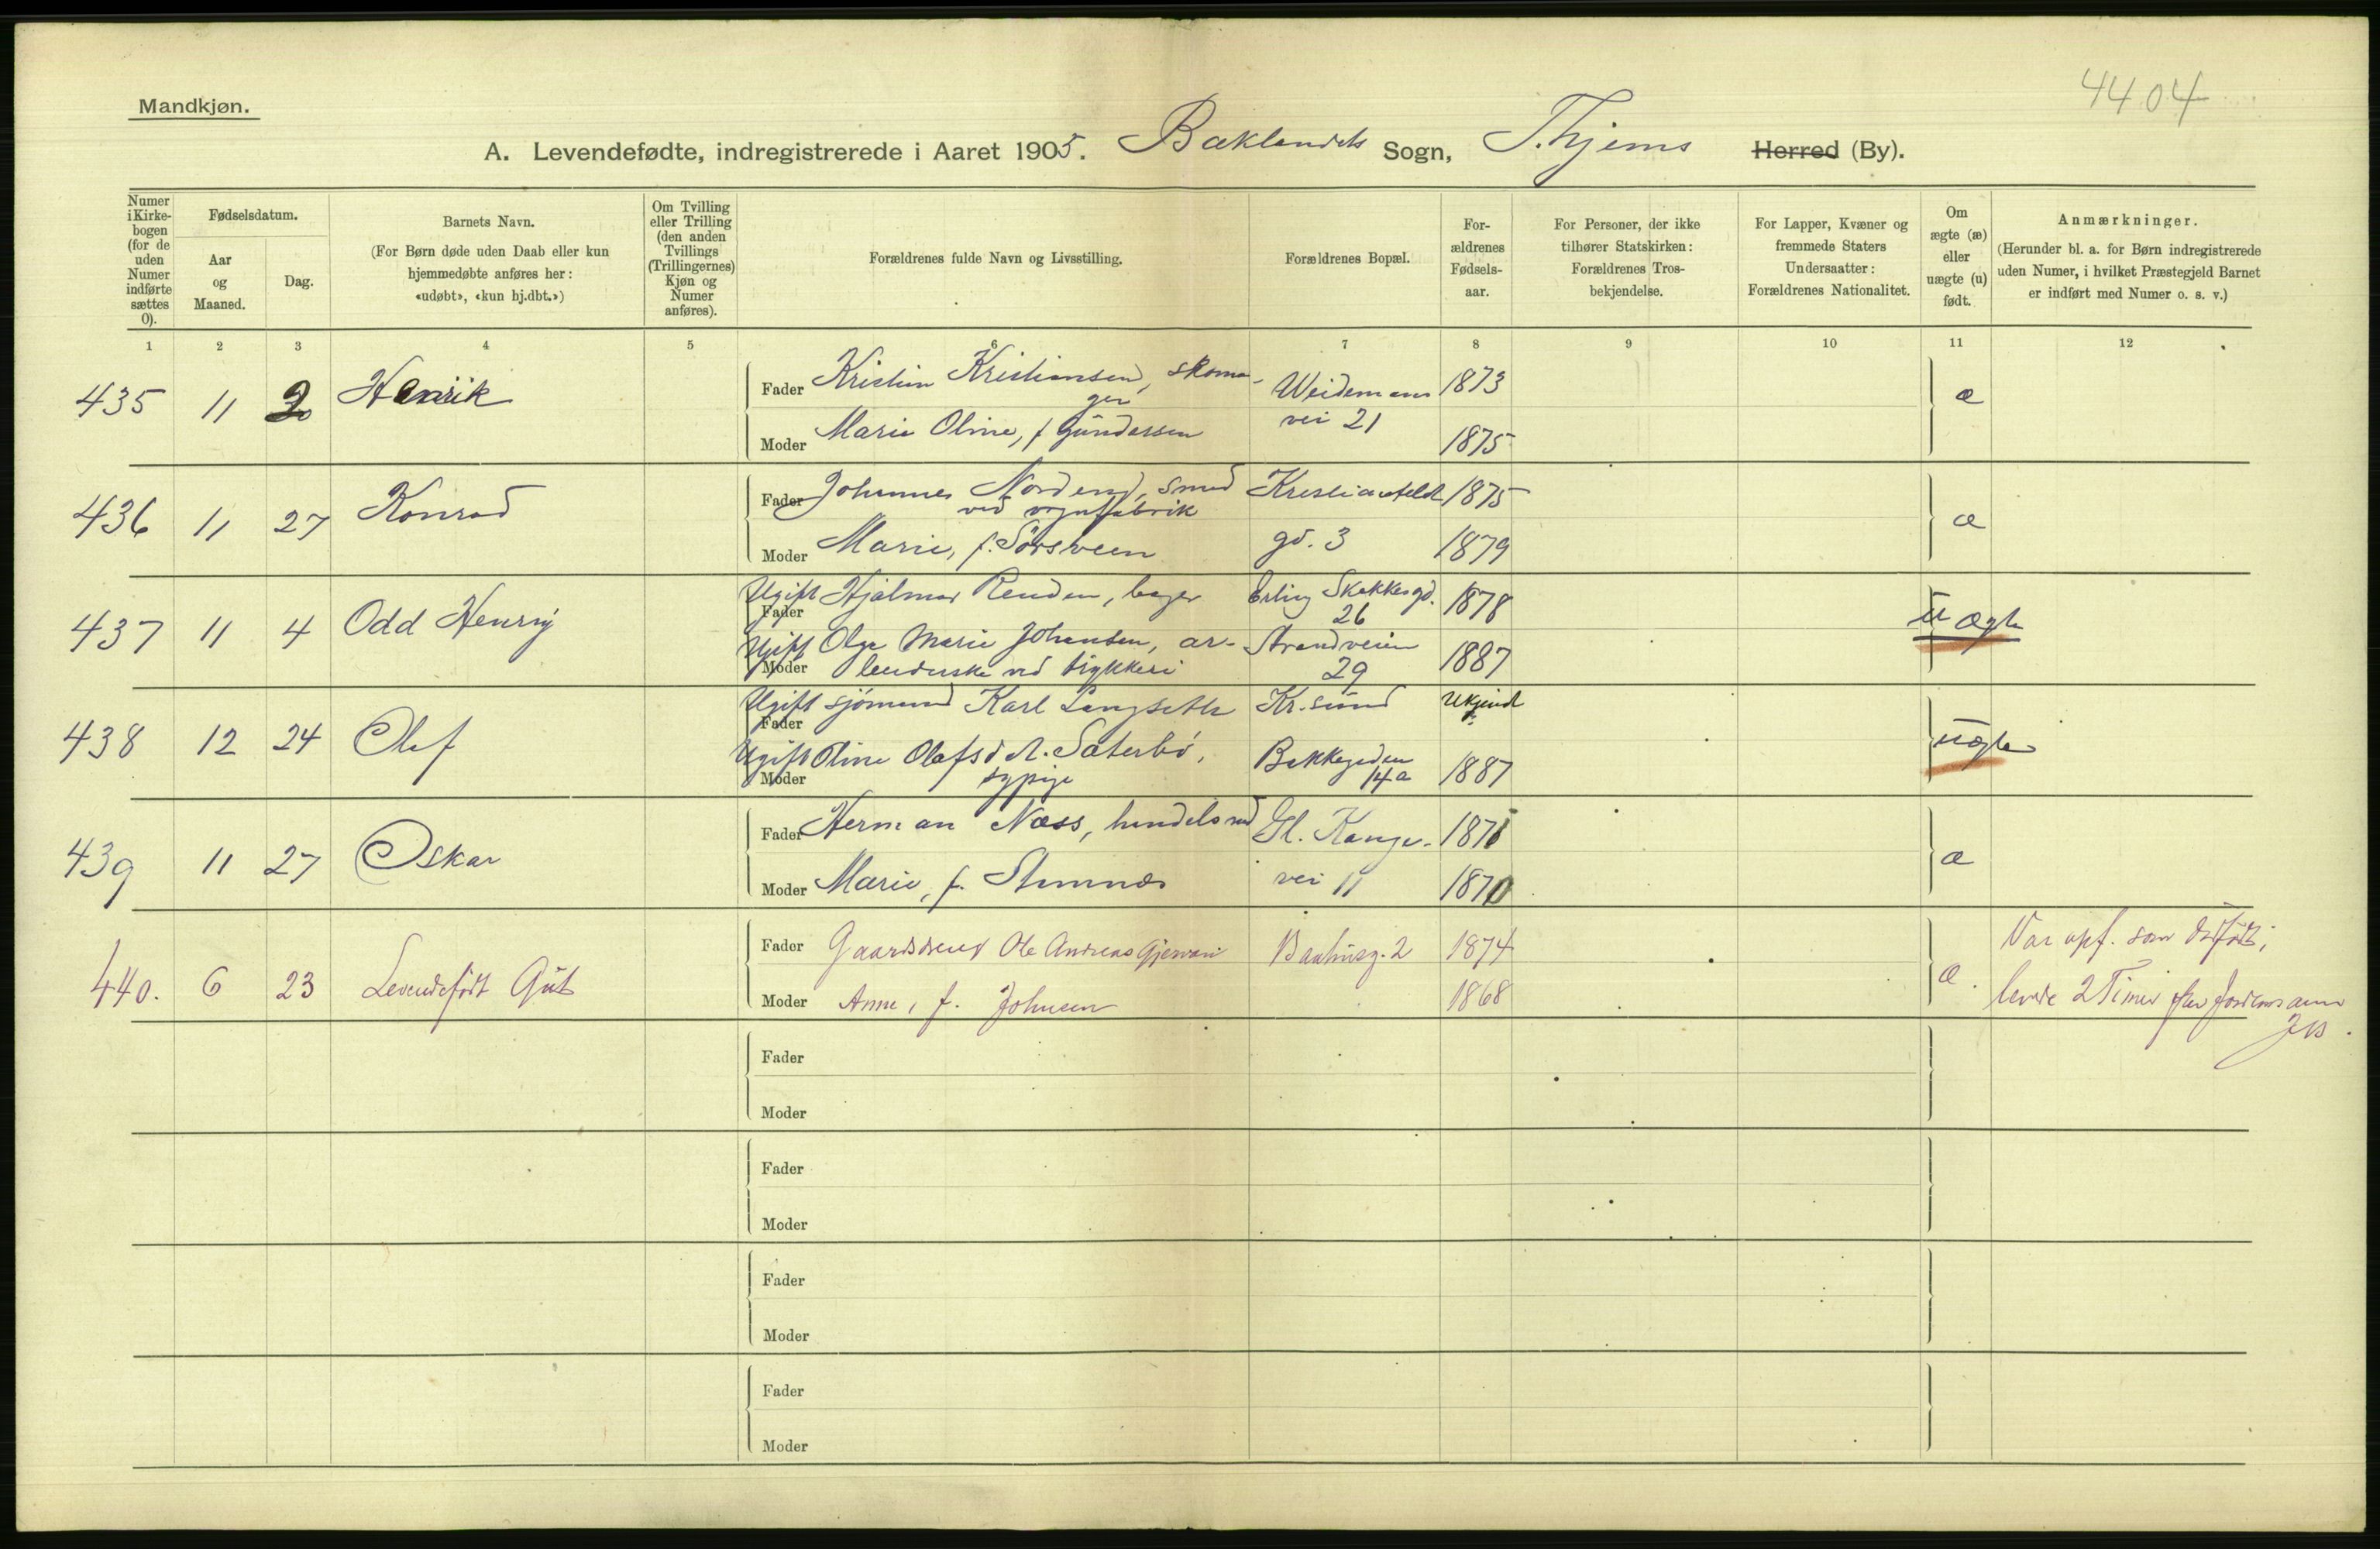 4404
Mandkjøn.
A. Levendefødte, indregistrerede i Aaret 1905. Baklandets Sogn, T.hjems Herred (By).
Numer i Kirke-bogen (for de uden Numer indførte sættes 0).
Fødselsdatum.
Aar og Maaned.
Dag.
Barnets Navn.
(For Børn døde uden Daab eller kun hjemmedøbte anføres her: «udøbt», «kun hj.dbt.»)
Om Tvilling eller Trilling (den anden Tvillings (Trillingernes) Kjøn og Numer anføres).
Forældrenes fulde Navn og Livsstilling.
Forældrenes Bopæl.
For-ældrenes Fødsels-aar.
For Personer, der ikke tilhører Statskirken: Forældrenes Tros-bekjendelse.
For Lapper, Kvæner og fremmede Staters Undersaatter: Forældrenes Nationalitet.
Om ægte (æ) eller uægte (u) født.
Anmærkninger.
(Herunder bl. a. for Børn indregistrerede uden Numer, i hvilket Præstegjeld Barnet er indført med Numer o. s. v.)
1 2 3 4 5 6 7 8 9 10 11 12
435 11 2 Henrik Fader Kristian Kristiansen, skoma-ger Weidemans 1873 æ
Moder Marie Oline, f. Gundersen vei 21 1875
436 11 27 Konrad Fader Johannes Nordeng, smed ved vognfabrik Kristiansfeldt 1875 æ
Moder Marie, f. Sørsveen gd. 3 1879
437 11 4 Odd Henry Ugift Fader Hjalmar Renden, bager Erling Skakkesgd. 26 1878 uægte
Ugift Moder Olga Marie Johansen, ar-beiderske ved trykkeri Strandveien 29 1887
438 12 24 Olef Ugift Fader sjømand Karl Langseth Kr.sund Ukjendt uægte
Ugift Moder Oline Olafsd.t. Sæterbø, sypige Bakkegaden 14a 1887
439 11 27 Oskar Fader Herman Næss, handelsmd Gl. Konge- 1871 æ
Moder Marie, f. vei 11 1870
440. 6 23 Levendefødt Gut Fader Gaardsdreng Ole Andreas Gjervan Baahusg. 2 1874 æ. Var opf. som dødfødt;
Moder Anne, f. Johnsen 1868 levde 2 Timer
Fader
Moder
Fader
Moder
Fader
Moder
Fader
Moder